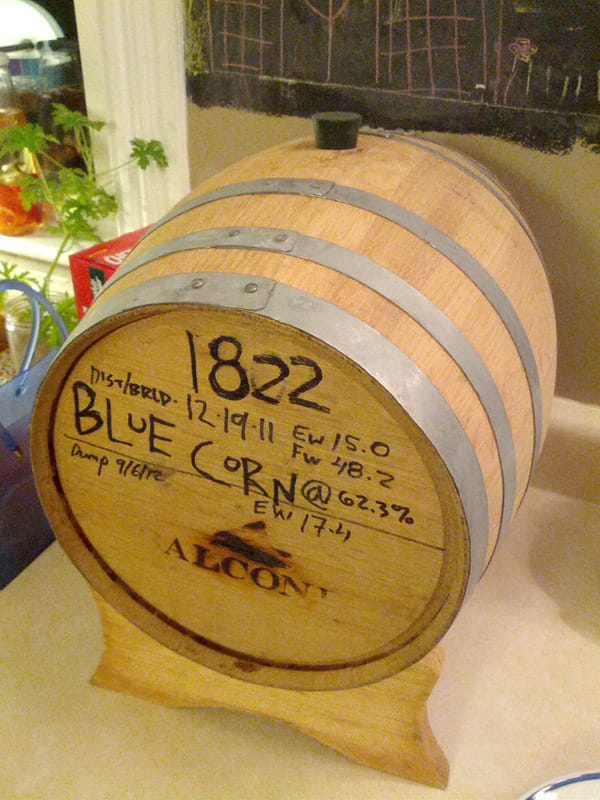 1822
DIST/BRLD. 12.19.11 EW 15.0
FW 48.2
BLUE CORN @ 62.3%
Dump 9/6/12 EW 17.4
ALCON